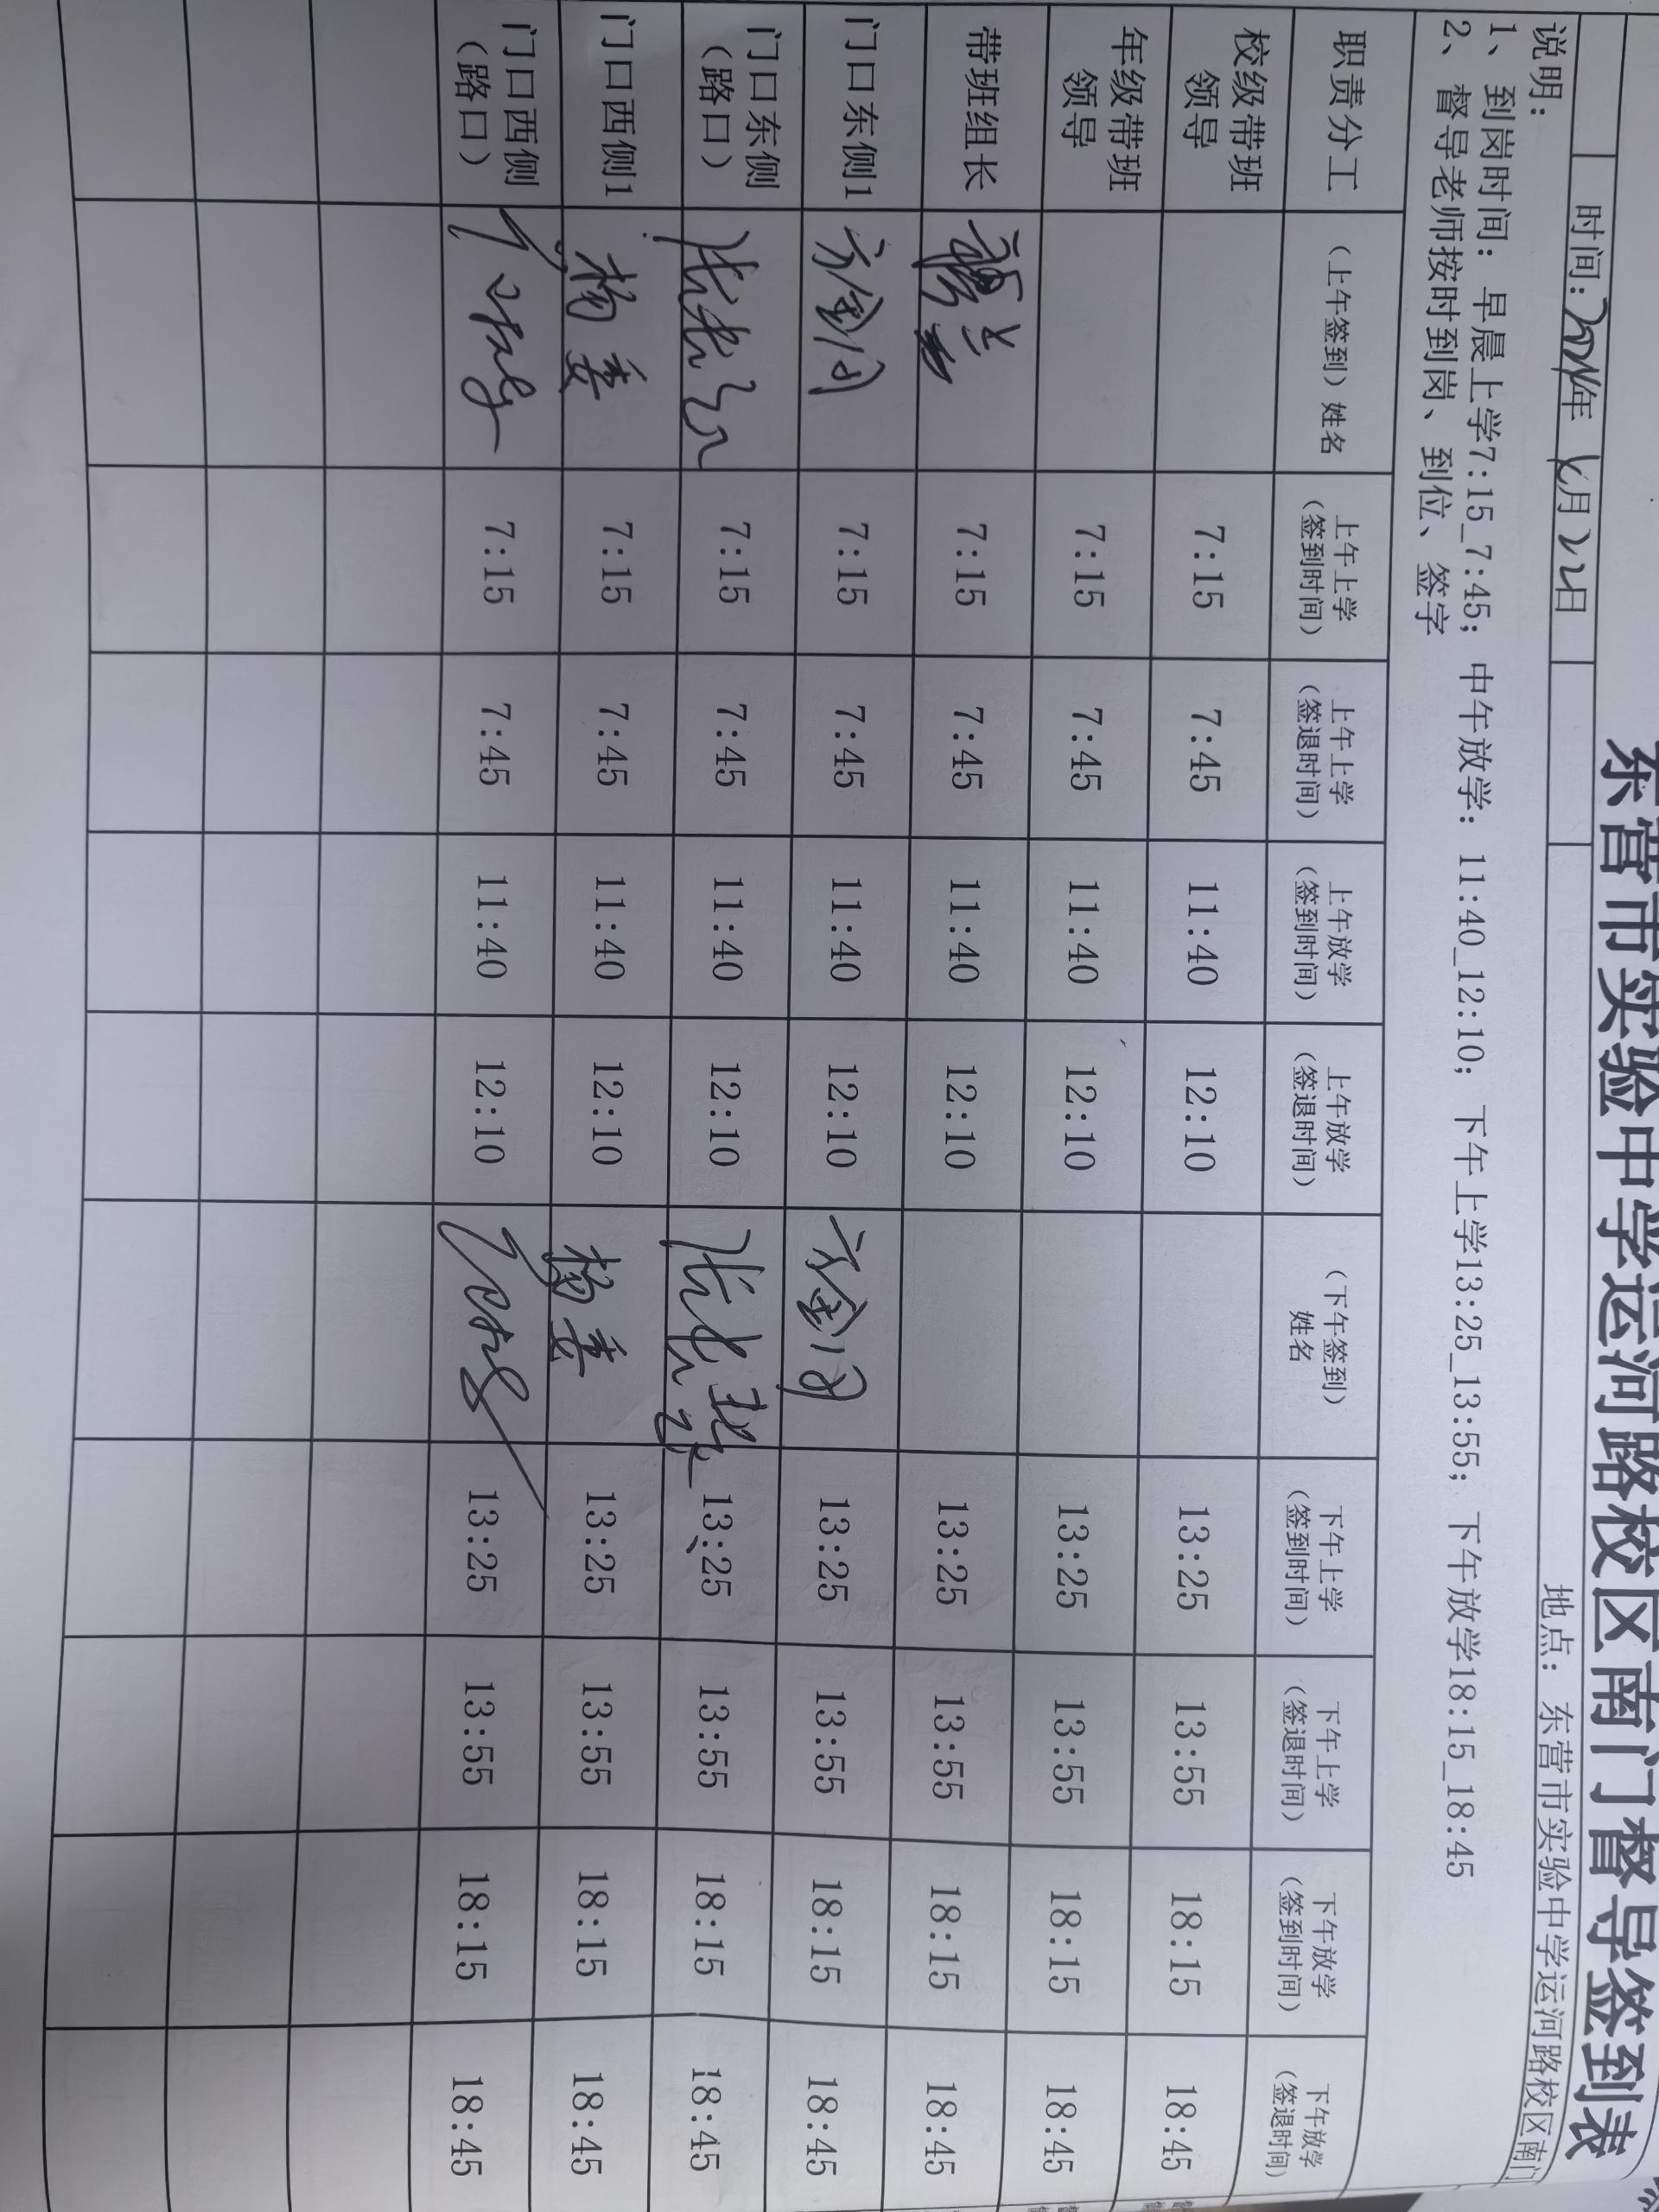 东营市实验中学运河路校区南门督导签到表
时间: 年 月 日 地点：东营市实验中学运河路校区南门
说明：
1、到岗时间：早晨上学7:15_7:45；中午放学：11:40_12:10；下午上学13:25_13:55；下午放学18:15_18:45
2、督导老师按时到岗、到位、签字
职责分工 （上午签到）姓名 上午上学（签到时间） 上午上学（签退时间） 上午放学（签到时间） 上午放学（签退时间） （下午签到）姓名 下午上学（签到时间） 下午上学（签退时间） 下午放学（签到时间） 下午放学（签退时间）
校级带班领导 7:15 7:45 11:40 12:10 13:25 13:55 18:15 18:45
年级带班领导 7:15 7:45 11:40 12:10 13:25 13:55 18:15 18:45
带班组长 7:15 7:45 11:40 12:10 13:25 13:55 18:15 18:45
门口东侧1 7:15 7:45 11:40 12:10 13:25 13:55 18:15 18:45
门口东侧（路口） 7:15 7:45 11:40 12:10 13:25 13:55 18:15 18:45
门口西侧1 7:15 7:45 11:40 12:10 13:25 13:55 18:15 18:45
门口西侧（路口） 7:15 7:45 11:40 12:10 13:25 13:55 18:15 18:45